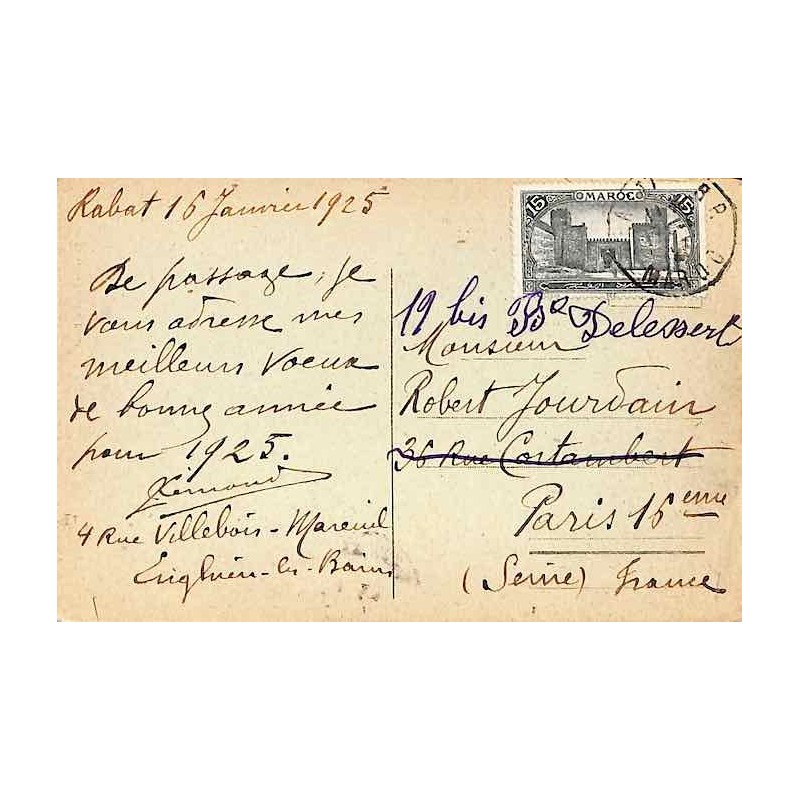 Rabat 16 Janvier 1925
De passage, je
vous adresse mes
meilleurs voeux
de bonne année
pour 1925.
4 Rue Villebois-Mareuil
Enghien-les-Bains
15 MAROC 15
MAROC
19 bis Bd Delessert
Monsieur
Robert Jourdain
36 Rue Costambert
Paris 16eme
(Seine) France